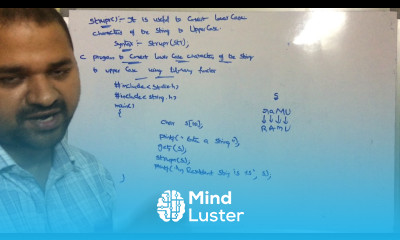 strupr():- It is useful to Convert lower Case
characters of the String to UpperCase.
Syntax:- strupr(str);
C program to Convert lower Case characters of the String
to upper Case using library function
#include<stdio.h>
#include<string.h>
main()
{
char s[10];
printf("Enter a string");
gets(s);
strupr(s);
printf("My Resultant string is %s", s);
}
S
RAMU
Mind
Luster